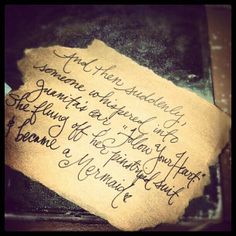 And then suddenly,
someone whispered into
Juanita's ear, "Follow Your Heart."
She flung off her pinstriped suit
& became a
Mermaid